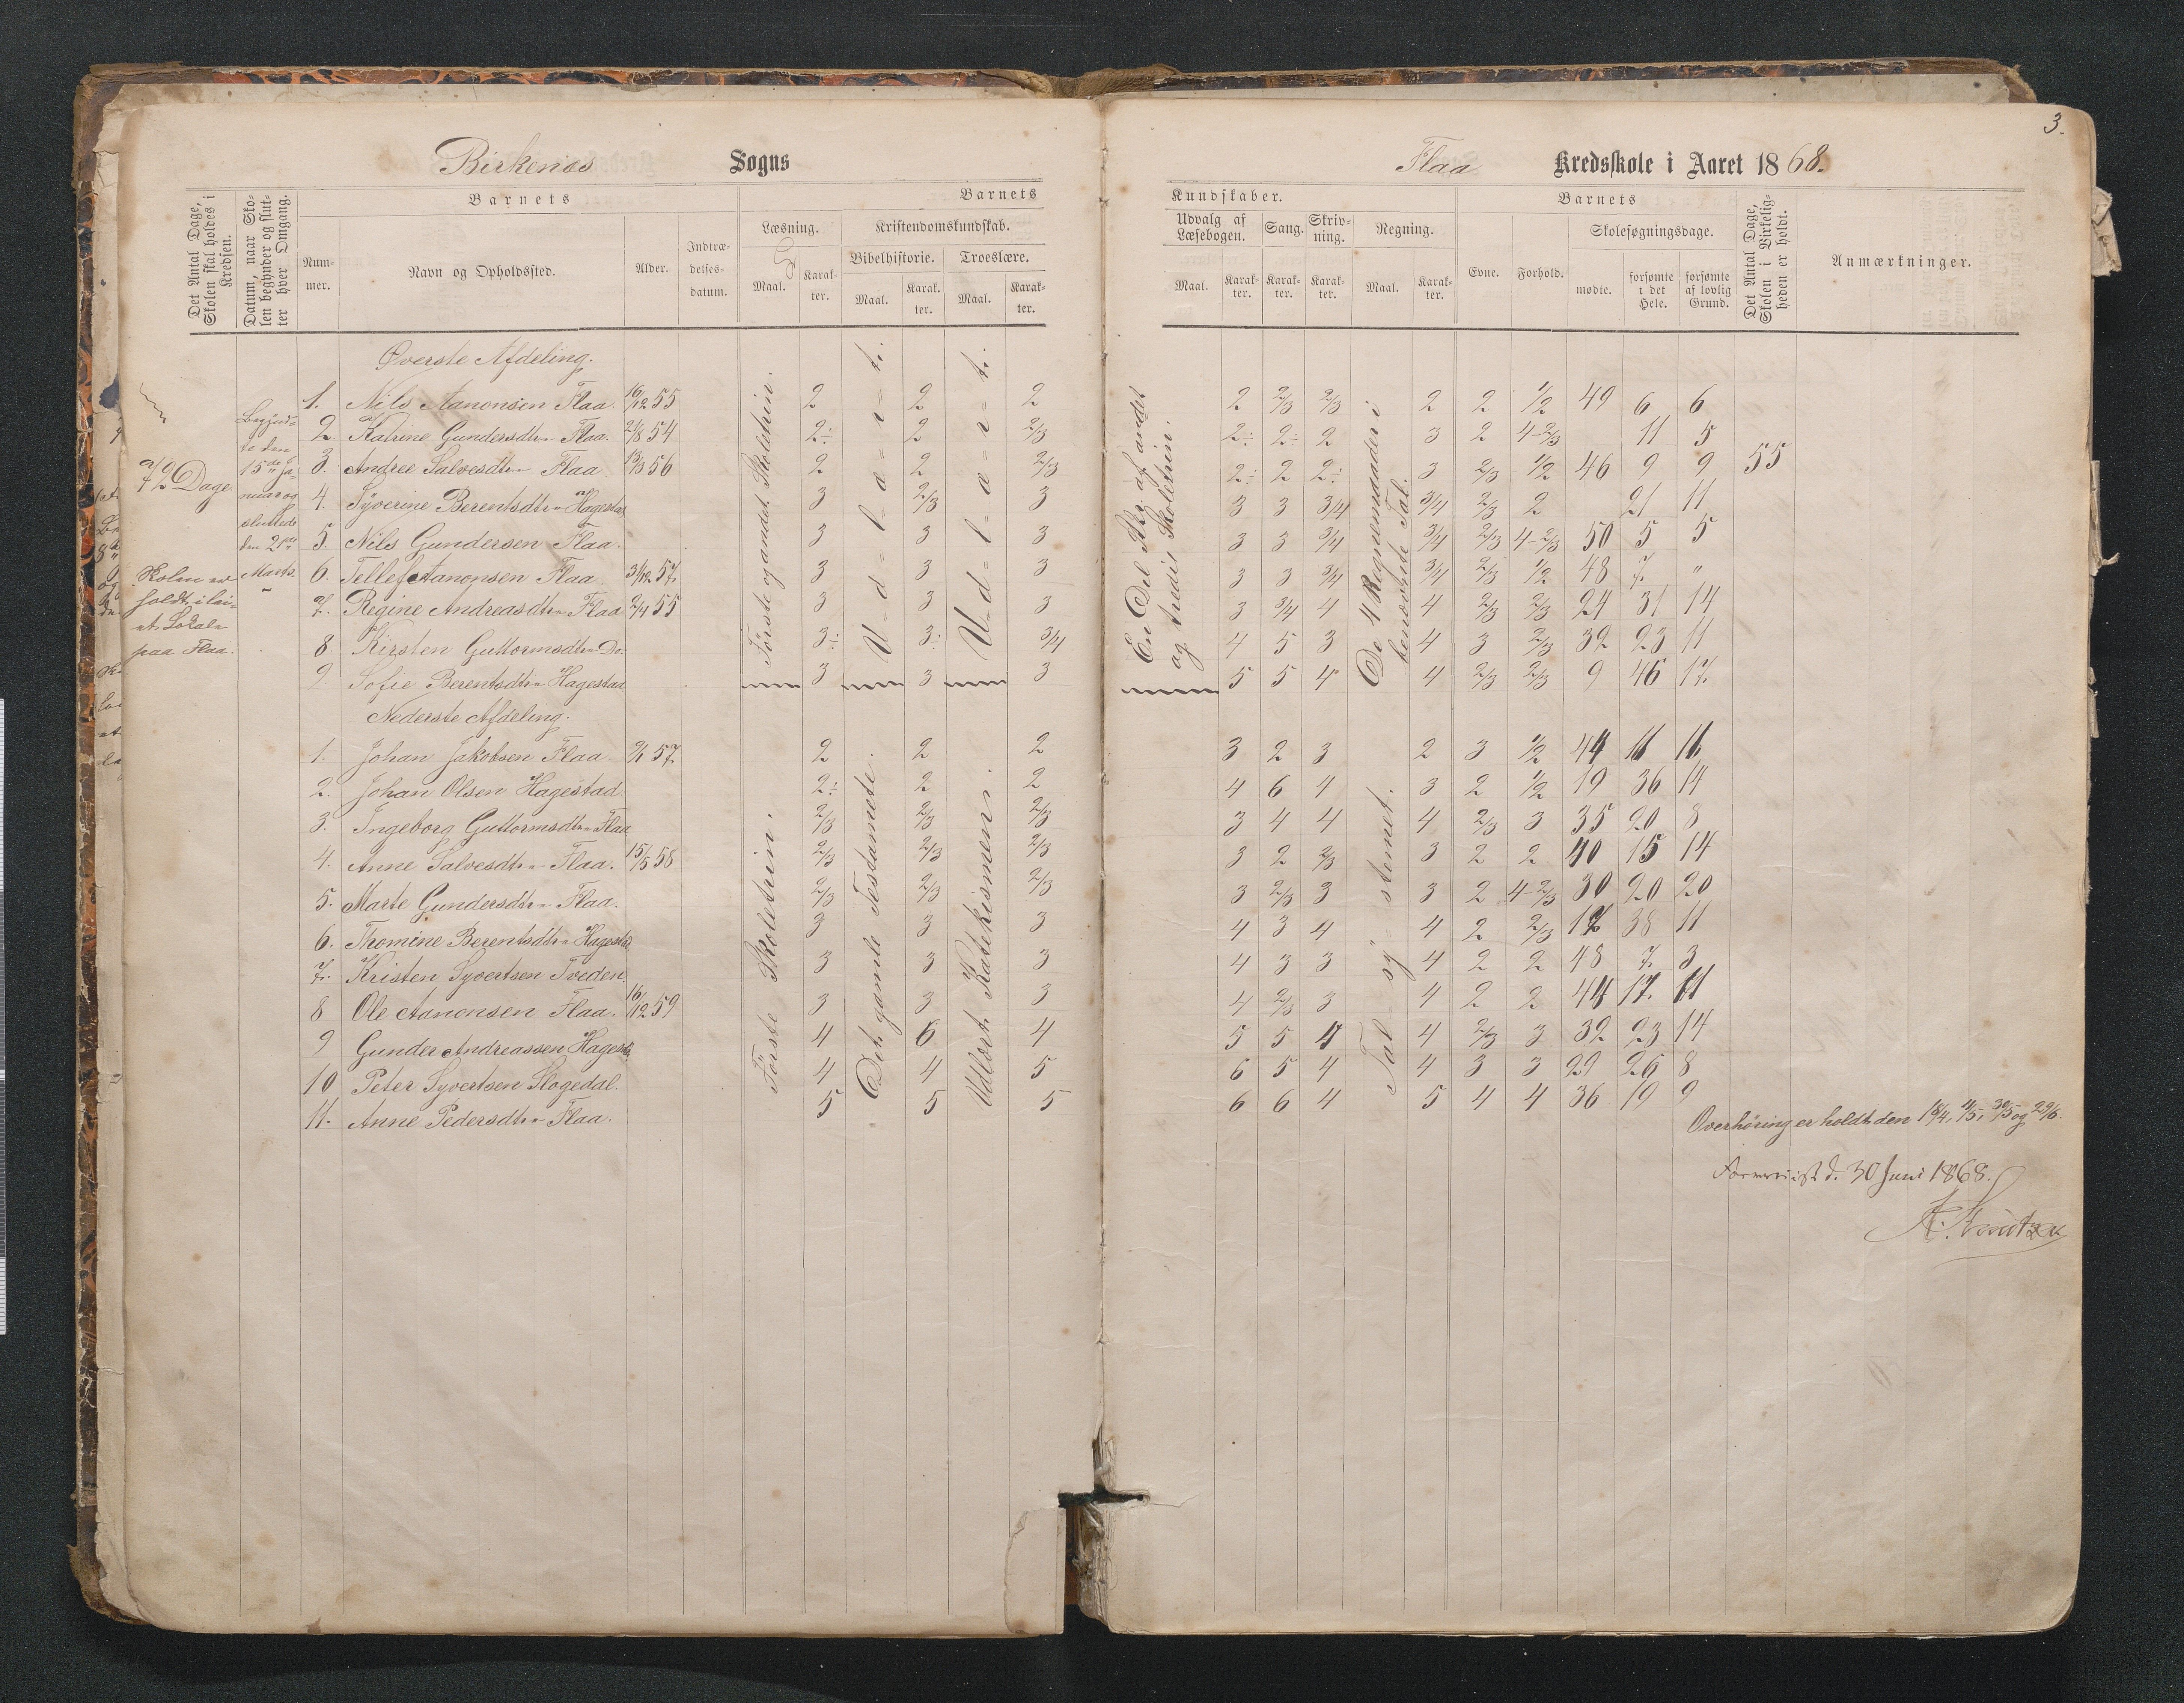 3.
Birkenes Sogns
Flaa Kredsskole i Aaret 1868.
Det Antal Dage, Skolen skal holdes i Kredsen.
Datum, naar Skolen begynder og slutter hver Omgang.
Barnets
Nummer.
Navn og Opholdssted.
Alder.
Indtrædelsesdatum.
Barnets
Læsning.
Maal.
Karakter.
Kristendomskundskab.
Bibelhistorie.
Maal.
Karakter.
Troeslære.
Maal.
Karakter.
Kundskaber.
Udvalg af Læsebogen.
Maal.
Karakter.
Sang.
Karakter.
Skrivning.
Karakter.
Regning.
Maal.
Karakter.
Barnets
Evne.
Forhold.
Skolesøgningsdage.
mødte.
forsømte i det Hele.
forsømte af lovlig Grund.
Det Antal Dage, Skolen i Virkeligheden er holdt.
Anmærkninger.
72 Dage
Skolen er
holdt i lei-
et Lokale
paa Flaa.
Begynd-
te den
15de Ja-
nuar og
sluttede
den 21de
Marts.
Øverste Afdeling.
1. Nils Aanonsen Flaa. 16/12 55 2 2 2 2 2/3 2/3 2 2 1/2 49 6 6
2. Katrine Gundersdtr Flaa. 21/8 54 2÷ 2 2/3 2÷ 2÷ 2 3 2 4-2/3 11 5
3. Andree Salvesdtr Flaa 13/3 56 2 2 2/3 2÷ 2 2÷ 3 2/3 1/2 46 9 9 55
4. Syverine Berentsdtr Hagestad 3 2/3 3 3 3 3/4 3/4 2/3 2 21 11
5. Nils Gundersen Flaa. 3 3 3 3 3 3/4 3/4 2/3 4-2/3 50 5 5
6. Tellef Aanonsen Flaa. 31/12 57 3 3 3 3 3 3/4 3/4 2/3 1/2 48 7 "
7. Regine Andreasdtr Flaa 2/4 55 3 3 3 3 3/4 4 4 2/3 2/3 24 31 14
8. Kirsten Guttormsdtr Do. 3÷ 3÷ 3/4 4 5 3 4 3 2/3 32 23 11
9 Sofie Berentsdtr Hagestad 3 3 3 5 5 4 4 2/3 2/3 9 46 17
Første og andet Skoletrin.
U=d=l=æ=r=t.
U=d=l=æ=r=t.
En Del Stkr. af andet
og tredie Skoletrin.
De 4 Regnemaader i
benævnte Tal.
Nederste Afdeling.
1. Johan Jakobsen Flaa. 2/1 57 2 2 2 3 2 3 2 3 1/2 44 11 11
2. Johan Olsen Hagestad 2÷ 2 2 4 6 4 3 2 1/2 19 36 14
3. Ingeborg Guttormsdtr Flaa 2/3 2/3 2/3 3 4 4 4 2/3 3 35 20 8
4. Anne Salvesdtr Flaa. 15/5 58 2/3 2/3 2/3 3 2 2/3 3 2 2 40 15 14
5. Marte Gundersdtr Flaa. 2/3 2/3 2/3 3 2/3 3 3 2 4-2/3 30 20 20
6. Thomine Berentsdtr Hagestad 3 3 3 4 3 4 4 2 2/3 17 38 11
7. Kristen Syvertsen Tveden 3 3 3 4 3 3 4 2 2 48 7 3
8 Ole Aanonsen Flaa. 16/12 59 3 3 3 4 2/3 3 4 2 2 44 17 11
9 Gunder Andreassen Hagestad 4 6 4 5 5 4 4 2/3 3 32 23 14
10 Peter Syvertsen Slogedal. 4 4 5 6 5 4 4 3 3 29 26 8
11. Anne Pedersdtr Flaa. 5 5 5 6 6 4 5 4 4 36 19 9
Første Skoletrin.
Det gamle Testamente.
Udlært Katekismen.
Tal-sy=stemet.
Overhøring er holdt den 18/4, 4/5, 30/5 og 29/6.
d. 30 Juni 1868.